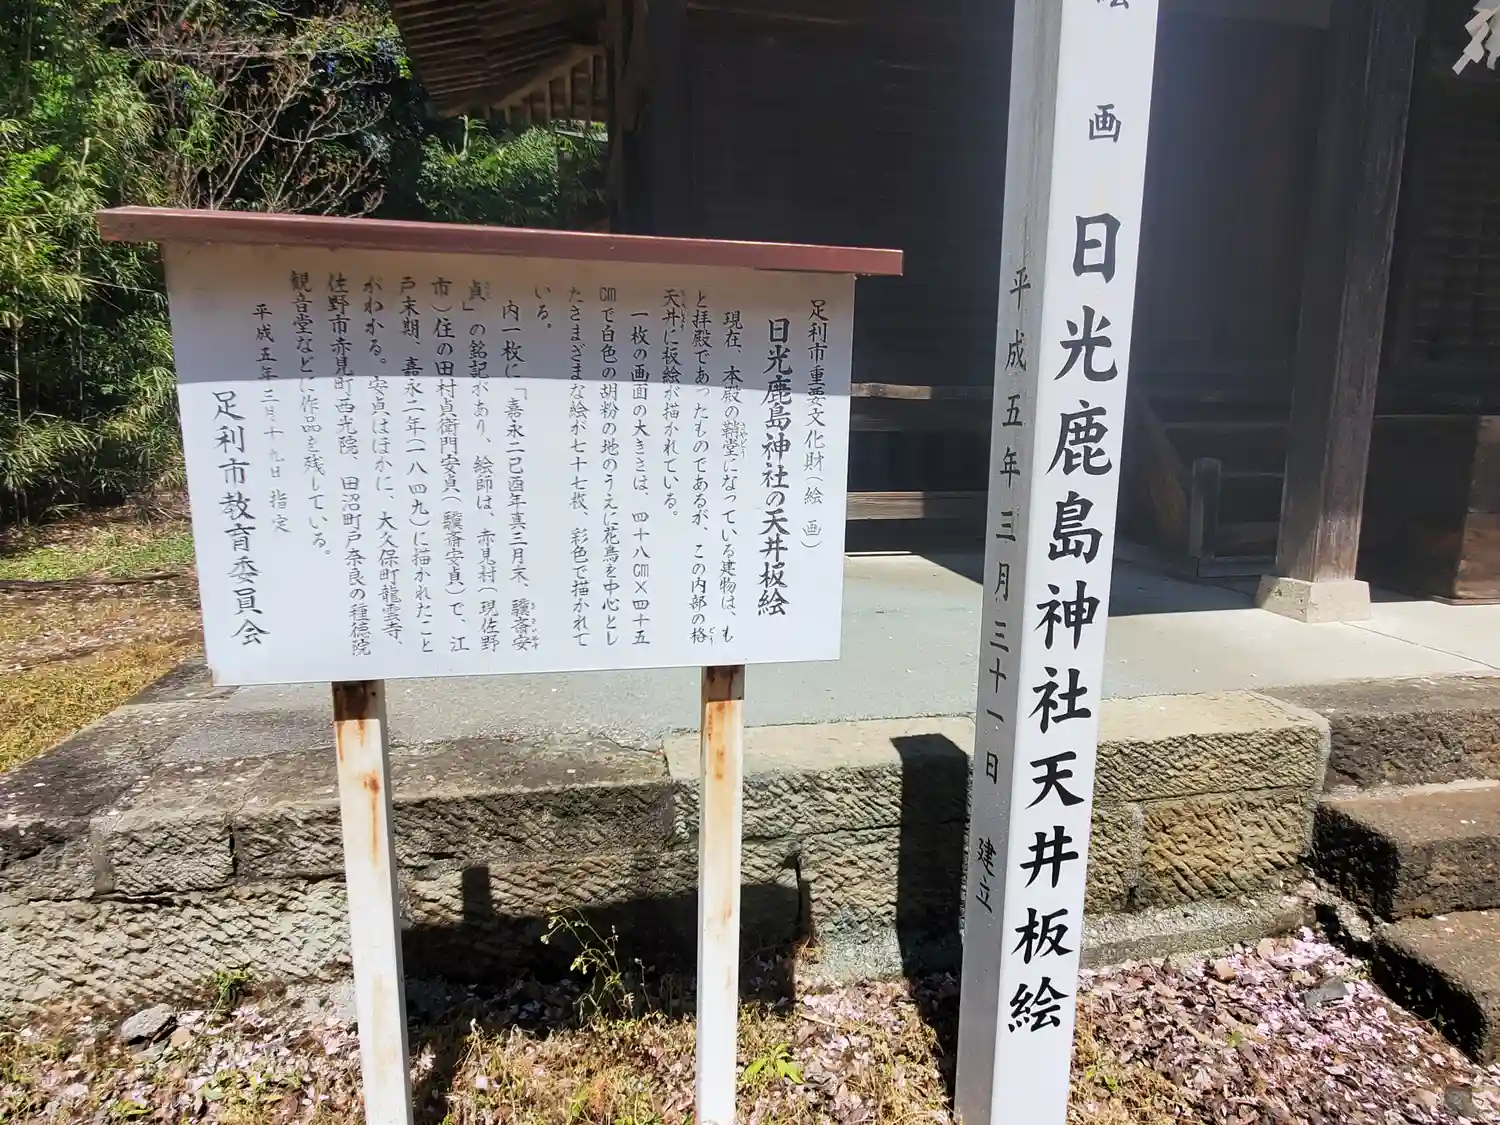 足利市重要文化財(絵 画)
日光鹿島神社の天井板絵
現在、本殿の鞘堂になっている建物は、も
と拝殿であったものであるが、この内部の格
天井に板絵が描かれている。
一枚の画面の大きさは、四十八㎝×四十五
㎝で白色の胡粉の地のうえに花鳥を中心とし
たさまざまな絵が七十七枚、彩色で描かれて
いる。
内一枚に「嘉永二己酉年真三月末、驥斎安
貞」の銘記があり、絵師は、赤見村(現佐野
市)住の田村貞衛門安貞(驥斎安貞)で、江
戸末期、嘉永二年(一八四九)に描かれたこと
がわかる。安貞はほかに、大久保町龍雲寺、
佐野市赤見町西光院、田沼町戸奈良の種徳院
観音堂などに作品を残している。
平成五年三月十九日 指定
足利市教育委員会
画 日光鹿島神社天井板絵
平成五年三月三十一日 建立